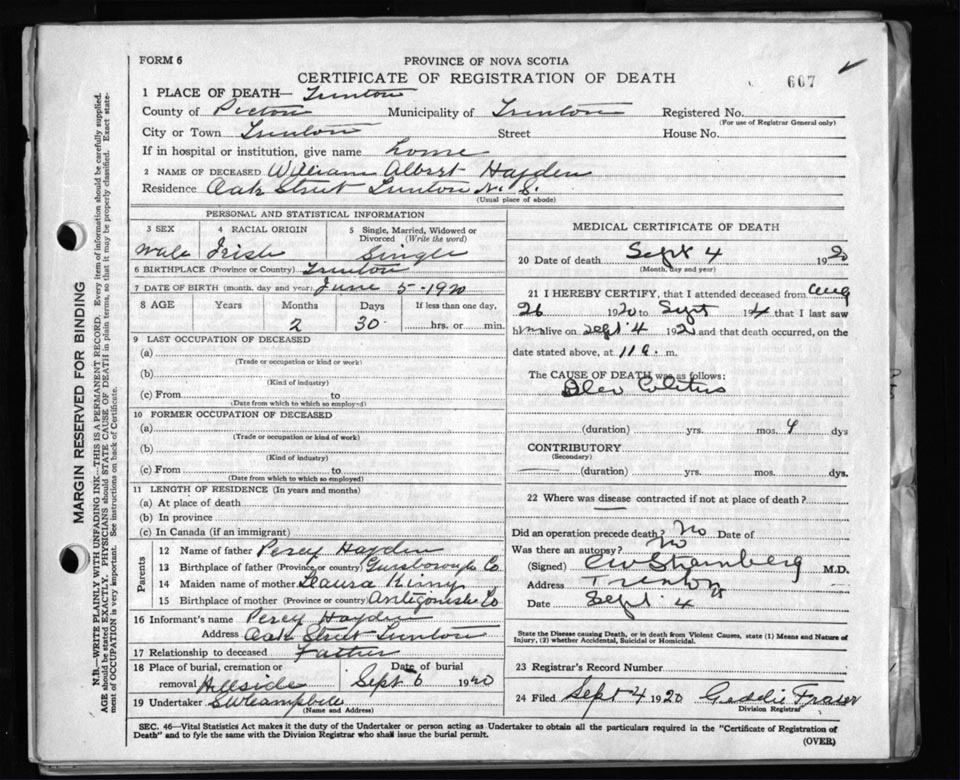 FORM 6
PROVINCE OF NOVA SCOTIA
CERTIFICATE OF REGISTRATION OF DEATH
607
1 PLACE OF DEATH— Trenton
County of Pictou Municipality of Trenton Registered No.
(For use of Registrar General only)
City or Town Trenton Street House No.
If in hospital or institution, give name home
2 NAME OF DECEASED William Albert Hayden
Residence Oak Street Trenton N. S.
(Usual place of abode)
PERSONAL AND STATISTICAL INFORMATION
3 SEX 4 RACIAL ORIGIN 5 Single, Married, Widowed or Divorced (Write the word)
Male Irish Single
6 BIRTHPLACE (Province or Country) Trenton
7 DATE OF BIRTH (month, day and year) June 5-1920
8 AGE Years Months Days If less than one day,
2 30 hrs. or min.
9 LAST OCCUPATION OF DECEASED
(a)
(Trade or occupation or kind or work)
(b)
(Kind of industry)
(c) From to
(Date from which to which so employed)
10 FORMER OCCUPATION OF DECEASED
(a)
(Trade or occupation or kind of work)
(b)
(Kind of industry)
(c) From to
(Date from which to which so employed)
11 LENGTH OF RESIDENCE (In years and months)
(a) At place of death
(b) In province
(c) In Canada (if an immigrant)
Parents
12 Name of father Percy Hayden
13 Birthplace of father (Province or country) Guysborough Co
14 Maiden name of mother Laura Kinny
15 Birthplace of mother (Province or country) Antigonish Co
16 Informant's name Percy Hayden
Address Oak Street Trenton
17 Relationship to deceased Father
18 Place of burial, cremation or Date of burial
removal Hillside Sept 6 1920
19 Undertaker SW Campbell
(Name and Address)
MEDICAL CERTIFICATE OF DEATH
20 Date of death Sept 4 1920
(Month, day and year)
21 I HEREBY CERTIFY, that I attended deceased from Aug
26 1920 to Sept 4 that I last saw
him alive on Sept 4 192 and that death occurred, on the
date stated above, at 11 a. m.
The CAUSE OF DEATH was as follows:
Ileo Colitis
(duration) yrs. mos. 9 dys
CONTRIBUTORY
(Secondary)
(duration) yrs. mos. dys.
22 Where was disease contracted if not at place of death?
Did an operation precede death? No Date of
Was there an autopsy? No
(Signed) M.D.
Address Trenton
Date Sept 4
State the Disease causing Death, or in death from Violent Causes, state (1) Means and Nature of
Injury, (2) whether Accidental, Suicidal or Homicidal.
23 Registrar's Record Number
24 Filed Sept 4 1920 Geddie Fraser
Division Registrar
SEC. 46—Vital Statistics Act makes it the duty of the Undertaker or person acting as Undertaker to obtain all the particulars required in the "Certificate of Registration of
Death" and to fyle the same with the Division Registrar who shall issue the burial permit.
(OVER)
MARGIN RESERVED FOR BINDING
N.B.—WRITE PLAINLY WITH UNFADING INK—THIS IS A PERMANENT RECORD. Every item of information should be carefully supplied.
AGE should be stated EXACTLY. PHYSICIANS should STATE CAUSE OF DEATH in plain terms, so that it may be properly classified. Exact state-
ment of OCCUPATION is very important. See instructions on back of Certificate.